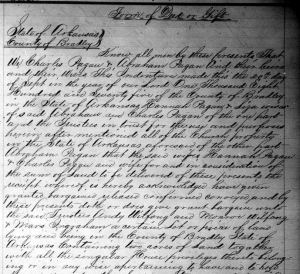 Form of Deed or Gift
State of Arkansas
County of Bradley
Know all men by these presents That
We Charles Pagan & Abraham Pagan and their heirs
and their Wives This Indenture made this the 29th day
of Sept in the year of our Lord One Thousand Eight
Hundred and Seventy in of the County of Bradley
in the State of Arkansas Hannah Pagan & wives
of said Abraham and Charles Pagan of the one part
and the Trustees in trust for the uses and purposes
herein after mentioned all of the Church property
in the State of Arkansas aforesaid of the other part
Abraham Pagan that the said wifes Hannah Pagan
& Charles Pagan and wife for and in consideration of
the sum of Land to be delivered of these presents the
receipt whereof is hereby acknowledged have given
granted bargained released confirmed conveyed and by
these presents do in deed give grant bargain unto
the said Trustees Wilfong and Monroe Wilfong
& Mars Ingraham a certain lot or piece of land
lying and being in the County of Bradley State of
Ark was containing two acres of land together
with all the singular House privilege thereto belong
ing or in any wise appertaining to have & to hold